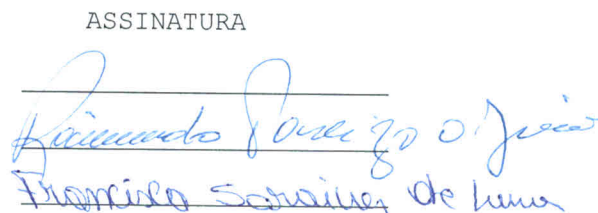 ASSINATURA
Raimundo
Francisco Saraiva de Luna